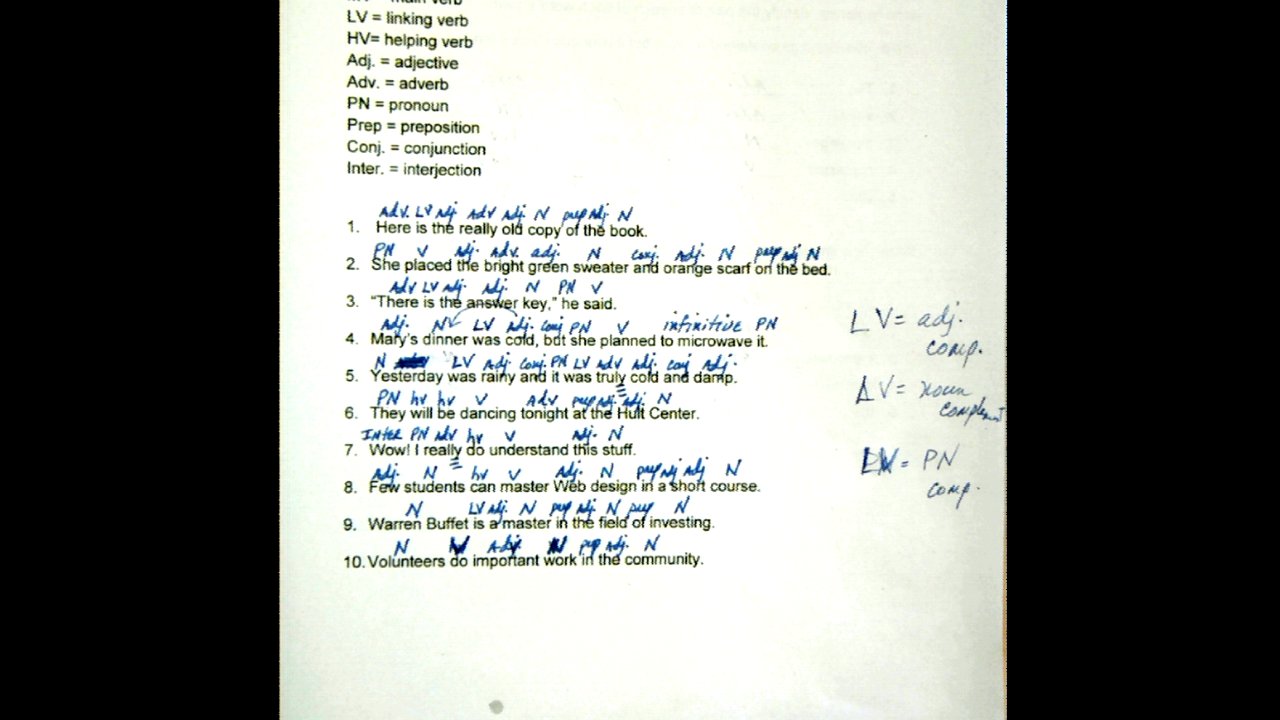 verb
LV = linking verb
HV= helping verb
Adj. = adjective
Adv. = adverb
PN = pronoun
Prep = preposition
Conj. = conjunction
Inter. = interjection
Adv. LV Adj. Adv Adj. N prep Adj. N
1. Here is the really old copy of the book.
PN V Adj. Adv. adj. N conj. Adj. N prep adj N
2. She placed the bright green sweater and orange scarf on the bed.
Adv LV adj. Adj. N PN V
3. "There is the answer key," he said.
Adj. N LV Adj. conj PN V infinitive PN
4. Mary's dinner was cold, but she planned to microwave it.
N LV Adj. conj. PN LV Adv Adj. conj Adj.
5. Yesterday was rainy and it was truly cold and damp.
PN hv hv V Adv prep adj. adj. N
6. They will be dancing tonight at the Hult Center.
Inter PN adv hv V Adj. N
7. Wow! I really do understand this stuff.
Adj. N hv V Adj. N prep adj adj N
8. Few students can master Web design in a short course.
N LV Adj. N prep adj. N prep N
9. Warren Buffet is a master in the field of investing.
N V Adj. N prep adj. N
10. Volunteers do important work in the community.
LV = adj.
comp.
LV = noun
complement
LV = PN
comp.